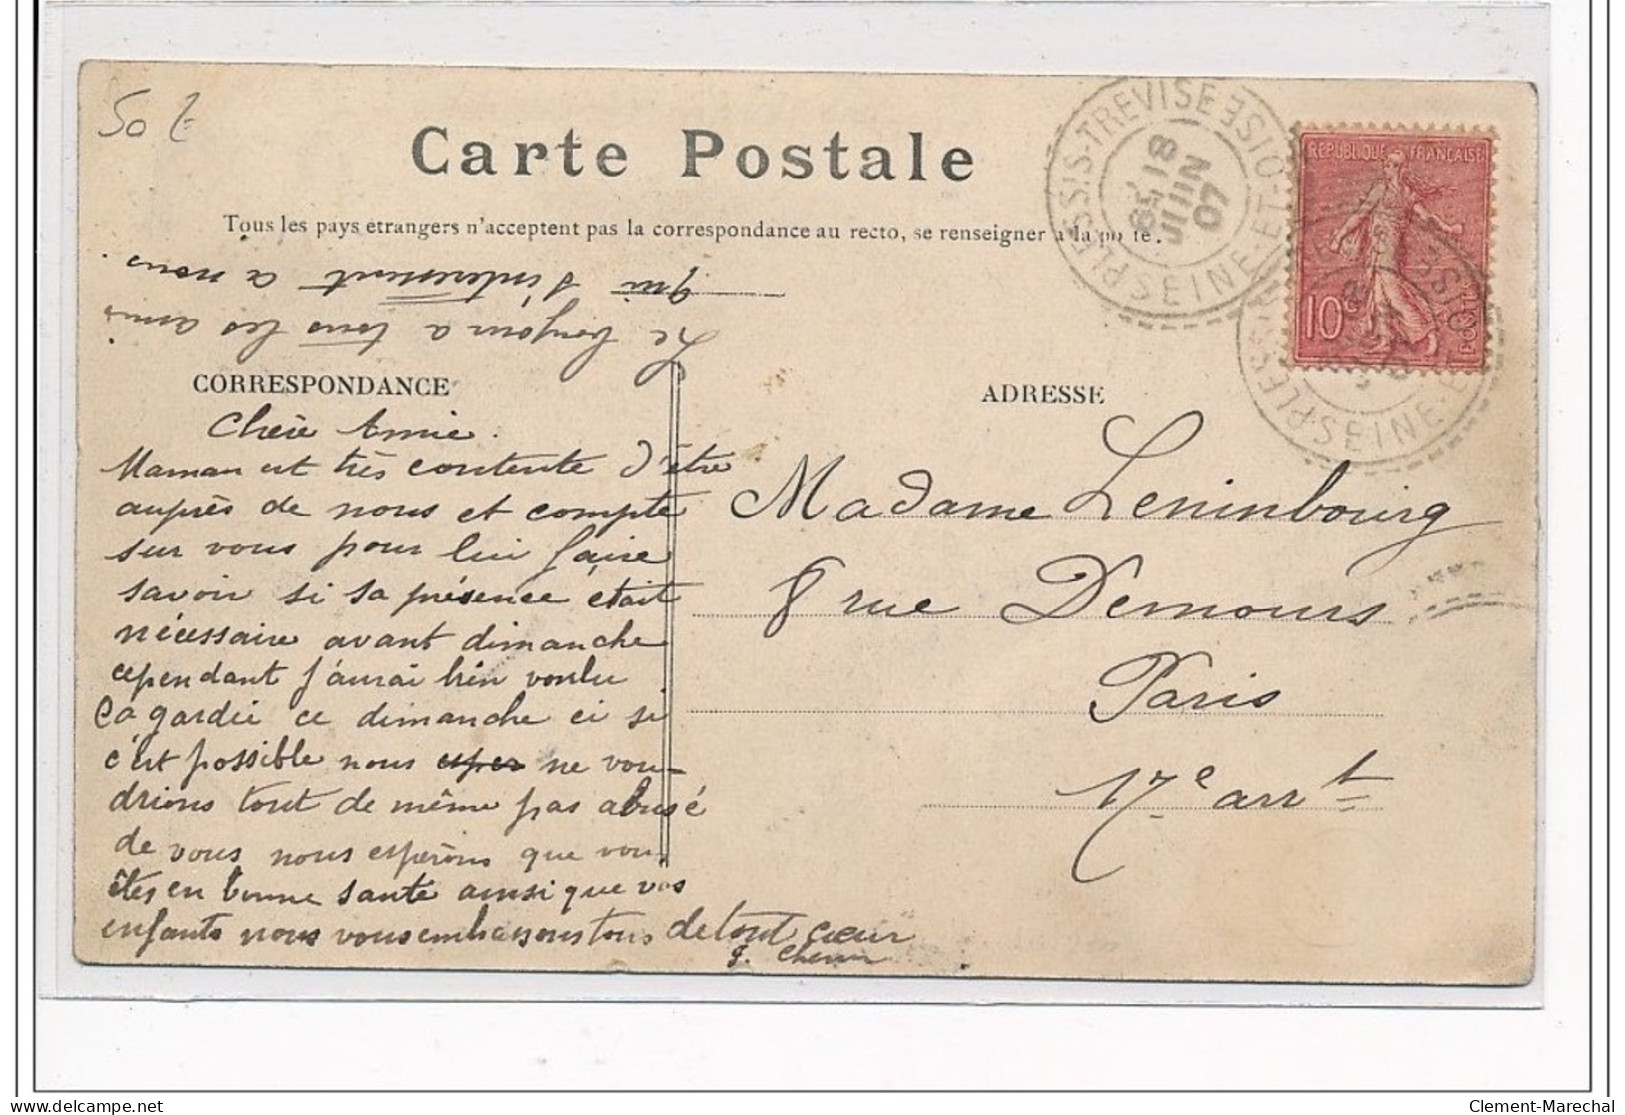 50 E
Carte Postale
Tous les pays etrangers n'acceptent pas la correspondance au recto, se renseigner a la po te.
PLESSIS-TREVISE SEINE-ET-OISE
18 JUIN 07
REPUBLIQUE FRANÇAISE
10 POSTES
PLESSIS SEINE-ET-OISE
Le bonjour a tous les amis
qui s'interessent a nous.
CORRESPONDANCE
Chère Amie.
Maman est très contente d'être
auprès de nous et compte
sur vous pour lui faire
savoir si sa présence était
nécessaire avant dimanche
cependant j'aurai bien voulu
la gardée ce dimanche ci si
c'est possible nous ne vou-
drions tout de même pas abusé
de vous nous esperons que vous
êtes en bonne santé ainsi que vos
enfants nous vous embrassons tous de tout cœur
ADRESSE
Madame Leninbourg
8 rue Demours
Paris
17.e arr t
Clement-Marechal